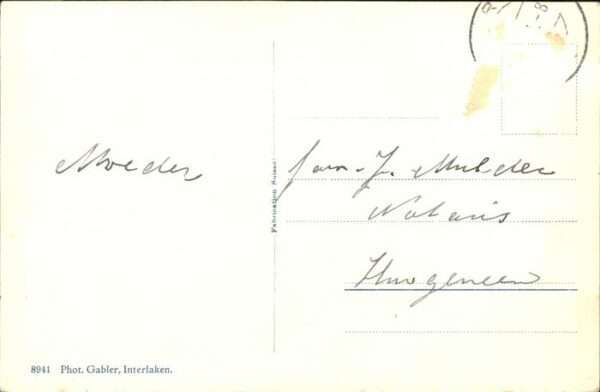 Moeder
Fam. J. Mulder
Notaris
Fabrication Suisse
8941 Phot. Gabler, Interlaken.